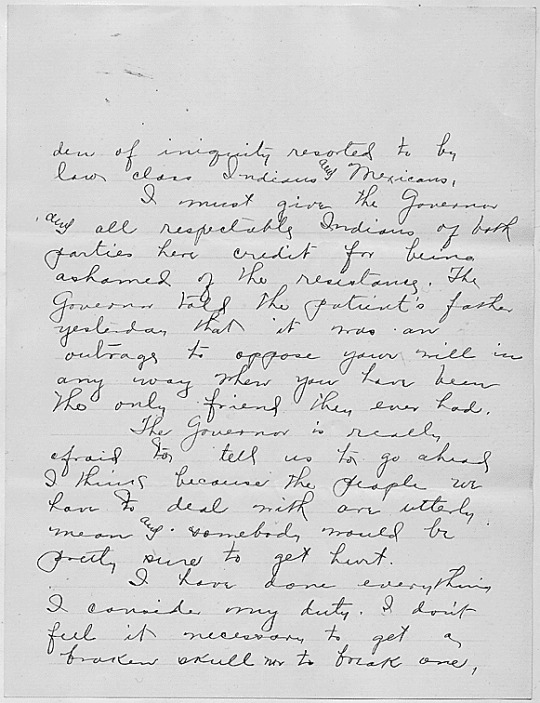 den of iniquity resorted to by
low class Indians and Mexicans.
I must give the Governor
and all respectable Indians of both
parties here credit for being
ashamed of the resistance. The
Governor told the patient's father
yesterday that it was an
outrage to oppose your will in
any way when you have been
the only friend they ever had.
The Governor is really
afraid to tell us to go ahead
I think because the people we
have to deal with are utterly
mean and somebody would be
pretty sure to get hurt.
I have done everything
I consider my duty. I don't
feel it necessary to get a
broken skull nor to break one,